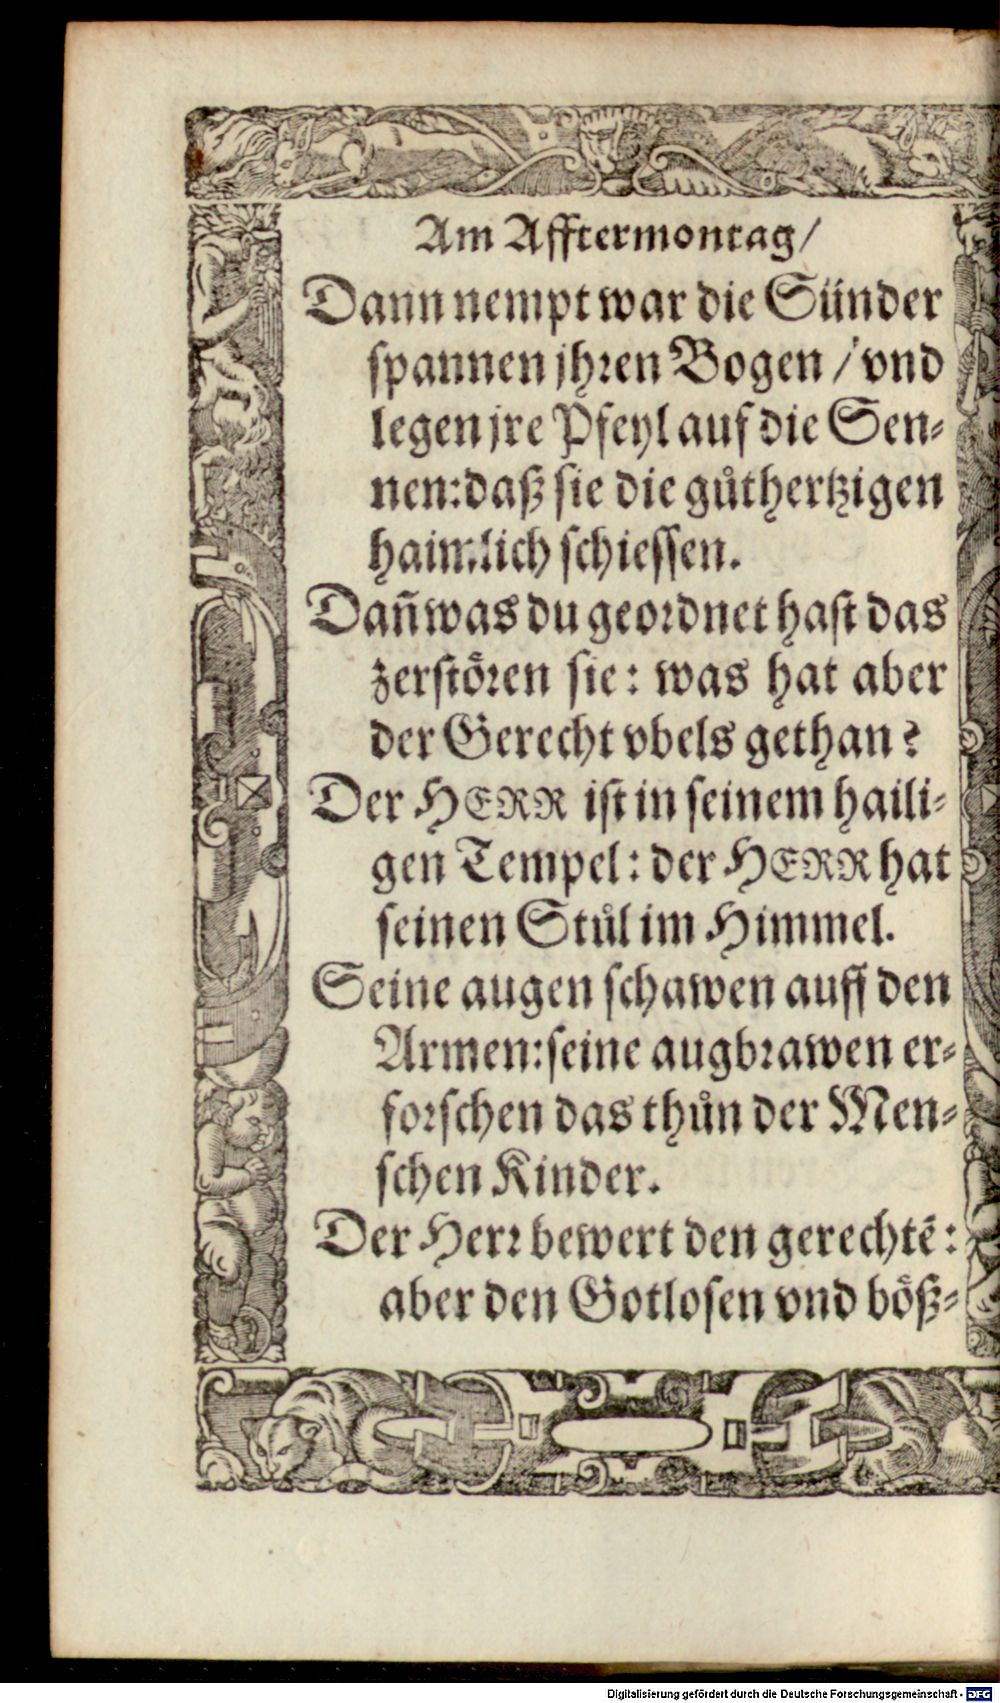 Am Afftermontag/
Dann nempt war die Sünder
spannen jhren Bogen / vnd
legen jre Pfeyl auf die Sen-
nen: daß sie die gůthertzigen
haimlich schiessen.
Dañ was du geordnet hast das
zerstören sie: was hat aber
der Gerecht vbels gethan?
Der HERR ist in seinem haili-
gen Tempel: der HERR hat
seinen Stůl im Himmel.
Seine augen schawen auff den
Armen: seine augbrawen er-
forschen das thůn der Men-
schen Kinder.
Der Herr bewert den gerechtē:
aber den Gotlosen vnd böß-
Digitalisierung gefördert durch die Deutsche Forschungsgemeinschaft - DFG